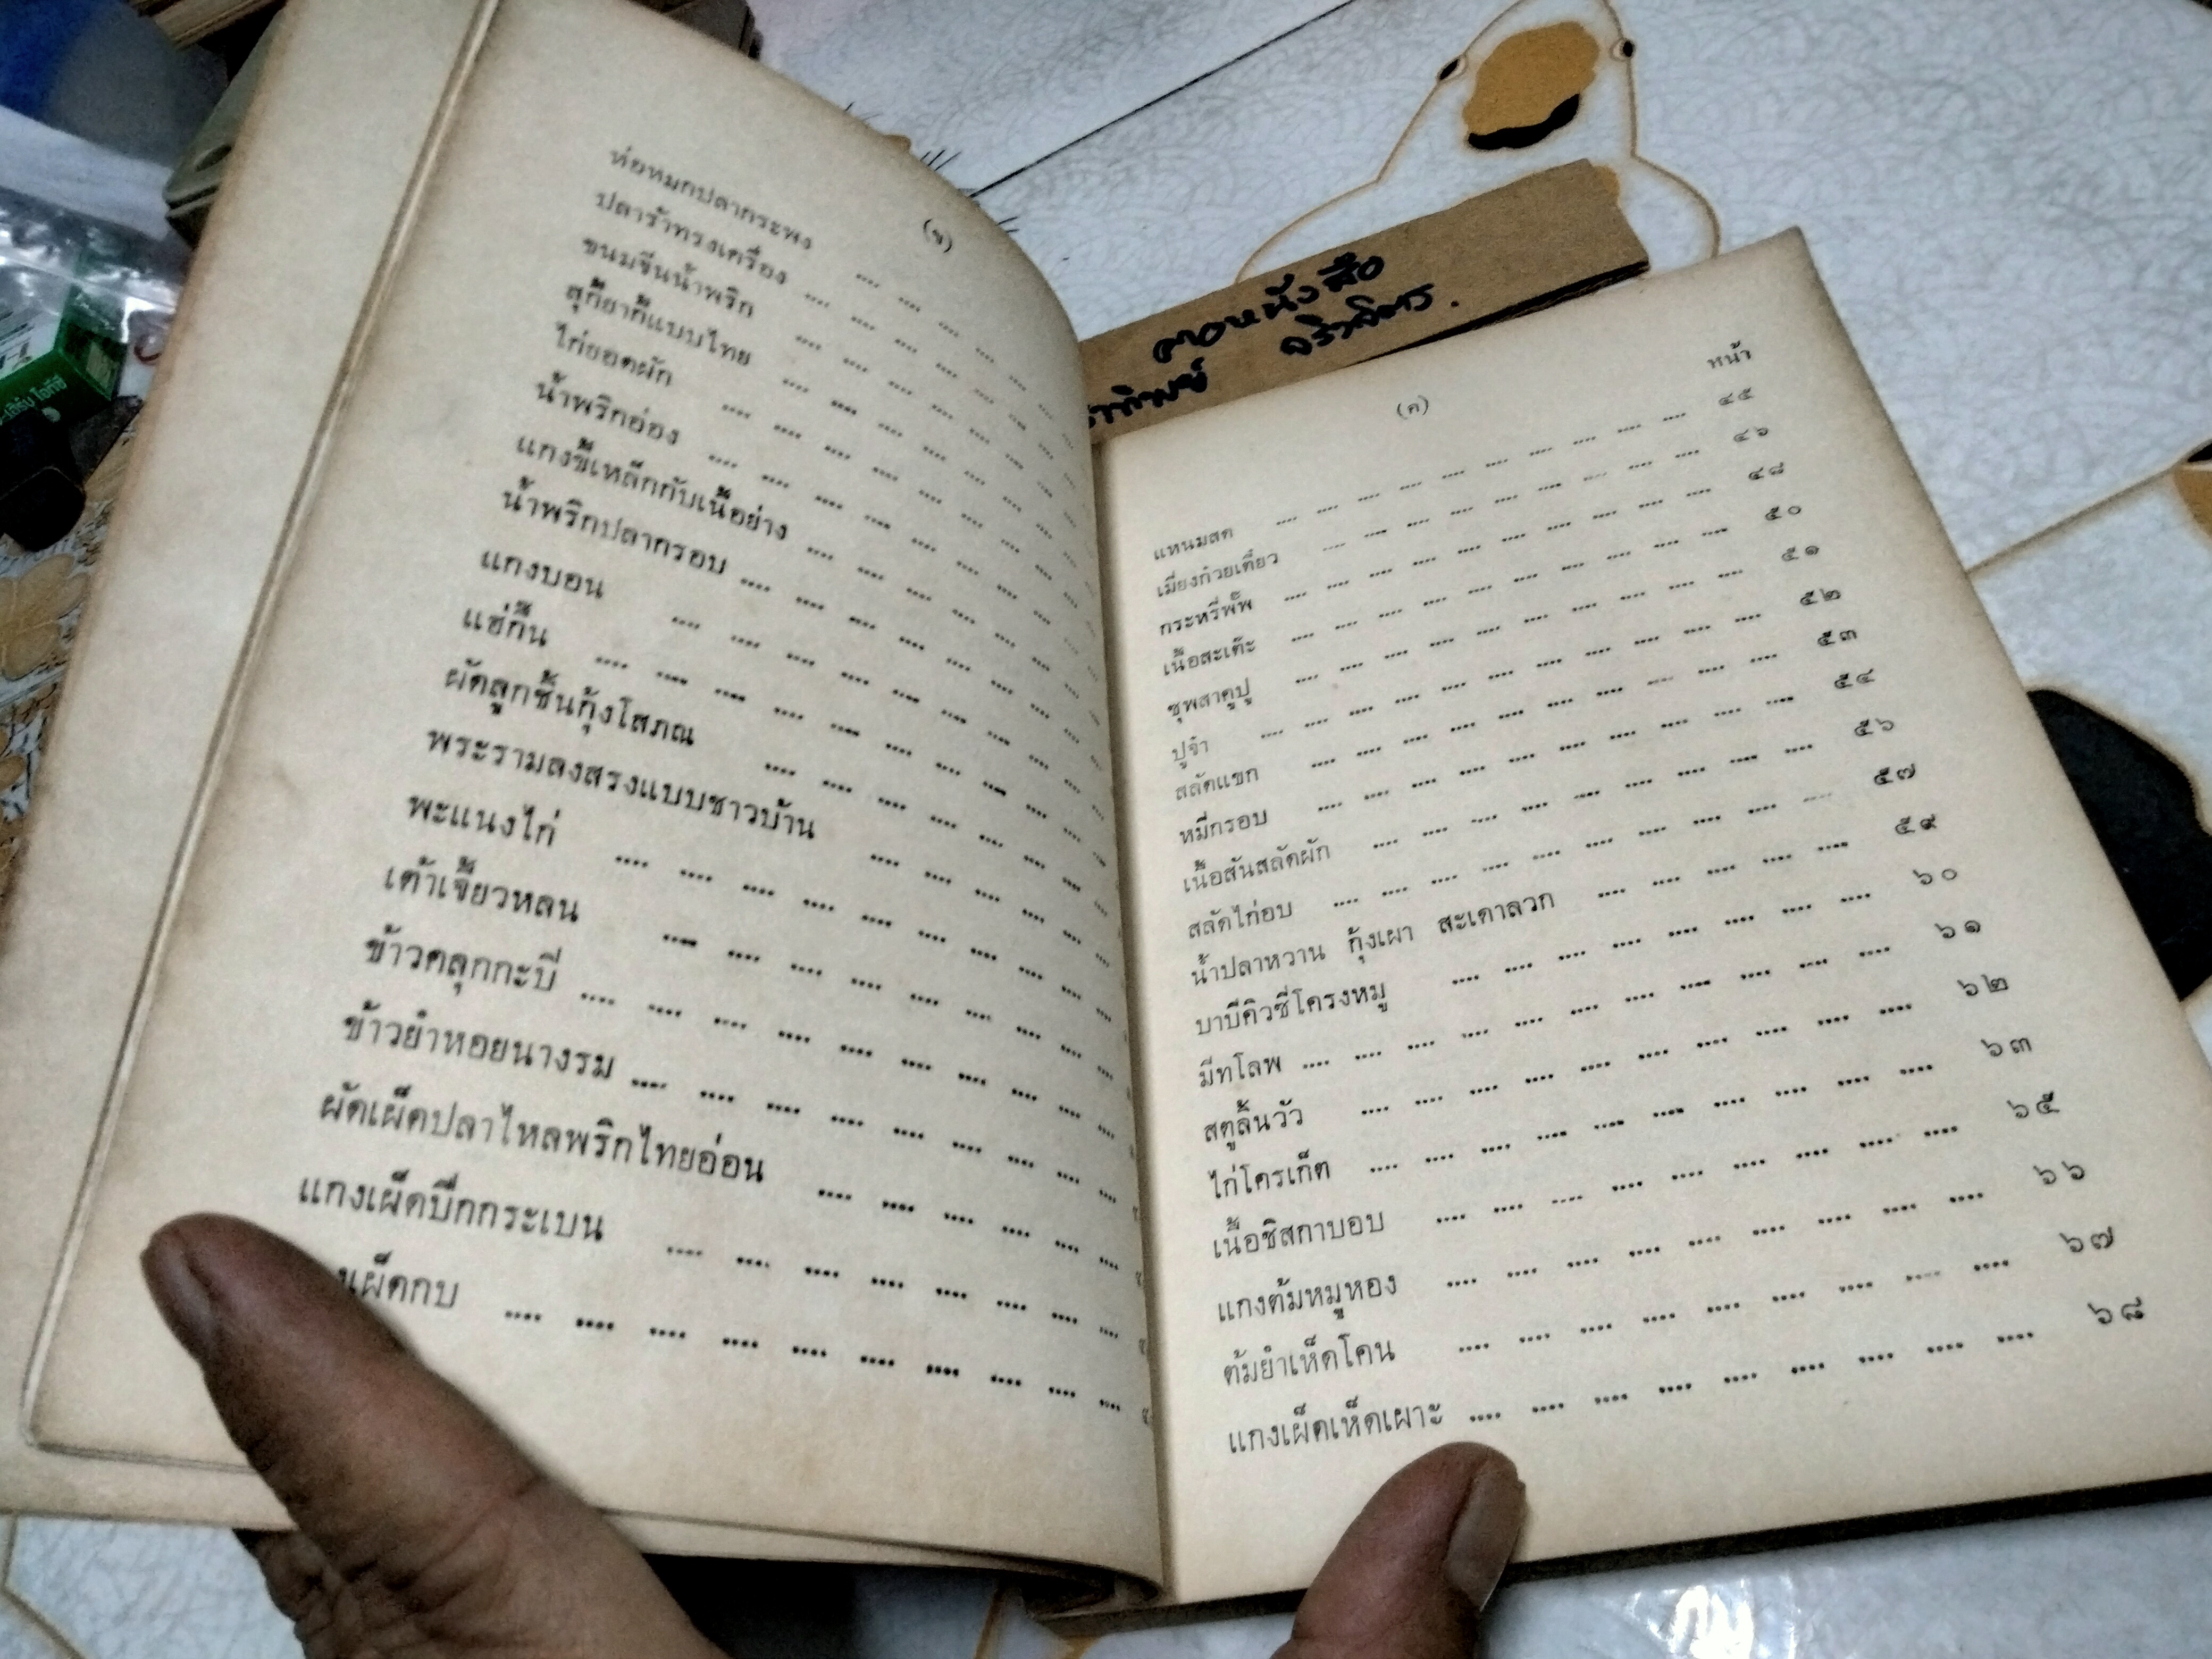 (ข)
ห่อหมกปลากระพง .... .... .... .... ....
ปลาร้าทรงเครื่อง .... .... .... .... ....
ขนมจีนน้ำพริก .... .... .... .... .... ....
สุกียากี้แบบไทย .... .... .... .... .... ....
ไก่ยอดผัก .... .... .... .... .... .... ....
น้ำพริกอ่อง .... .... .... .... .... .... ....
แกงขี้เหล็กกับเนื้อย่าง .... .... .... .... .... ....
น้ำพริกปลากรอบ .... .... .... .... .... .... ....
แกงบอน .... .... .... .... .... .... .... ....
แฮ่กึ๊น .... .... .... .... .... .... .... .... ....
ผัดลูกชิ้นกุ้งโสภณ .... .... .... .... .... ....
พระรามลงสรงแบบชาวบ้าน .... .... .... .... ....
พะแนงไก่ .... .... .... .... .... .... .... .... ....
เต้าเจี้ยวหลน .... .... .... .... .... .... .... ....
ข้าวคลุกกะปี่ .... .... .... .... .... .... .... .... ....
ข้าวยำหอยนางรม .... .... .... .... .... .... .... ....
ผัดเผ็ดปลาไหลพริกไทยอ่อน .... .... .... .... ....
แกงเผ็ดปีกกระเบน .... .... .... .... .... .... .... ....
เผ็ดกบ .... .... .... .... .... .... .... .... .... ....
(ค)
หน้า
แหนมสด .... .... .... .... .... .... .... .... .... .... ๔๕
เมี่ยงก๋วยเตี๋ยว .... .... .... .... .... .... .... .... .... ๔๖
กระหรี่พั๊พ .... .... .... .... .... .... .... .... .... .... ๔๘
เนื้อสะเต๊ะ .... .... .... .... .... .... .... .... .... .... ๕๐
ซุพสาคูปู .... .... .... .... .... .... .... .... .... .... ๕๑
ปูจ๋า .... .... .... .... .... .... .... .... .... .... .... ๕๒
สลัดแขก .... .... .... .... .... .... .... .... .... .... ๕๓
หมี่กรอบ .... .... .... .... .... .... .... .... .... .... ๕๔
เนื้อสันสลัดผัก .... .... .... .... .... .... .... .... .... ๕๖
สลัดไก่อบ .... .... .... .... .... .... .... .... .... .... ๕๗
น้ำปลาหวาน กุ้งเผา สะเดาลวก .... .... .... .... .... ๕๙
บาบีคิวซี่โครงหมู .... .... .... .... .... .... .... .... ๖๐
มีทโลพ .... .... .... .... .... .... .... .... .... .... .... ๖๑
สตูลิ้นวัว .... .... .... .... .... .... .... .... .... .... ๖๒
ไก่โครเก็ต .... .... .... .... .... .... .... .... .... .... ๖๓
เนื้อชิสกาบอบ .... .... .... .... .... .... .... .... .... ๖๕
แกงต้มหมูหอง .... .... .... .... .... .... .... .... .... ๖๖
ต้มยำเห็ดโคน .... .... .... .... .... .... .... .... .... ๖๗
แกงเผ็ดเห็ดเผาะ .... .... .... .... .... .... .... .... .... ๖๘